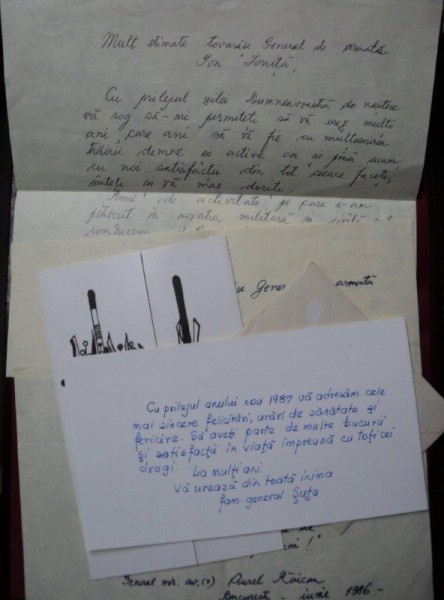 Mult stimate tovarăşe General de armată
Ion Ioniţă,
Cu prilejul zilei Dumneavoastră de naştere
vă rog să-mi permiteţi să vă urez mulţi
ani, care ani să vă fie cu mulţumirea
trăirii demne şi active ca şi pînă acum,
cu noi satisfacţii din tot ceace faceţi,
şi vă mai doriţi.
Anii de activitate pe care i-am
petrecut în aviaţia militară şi civilă
conducerea
General armată
Cu prilejul anului nou 1987 vă adresăm cele
mai sincere felicitări, urări de sănătate şi
fericire. Să aveţi parte de multe bucurii
şi satisfacţii în viaţă împreună cu toţi cei
dragi. La mulţi ani
Vă urează din toată inima
fam. general Şuţa
General mr. av. (r) Aurel Răican
Bucureşti - iunie 1986 -